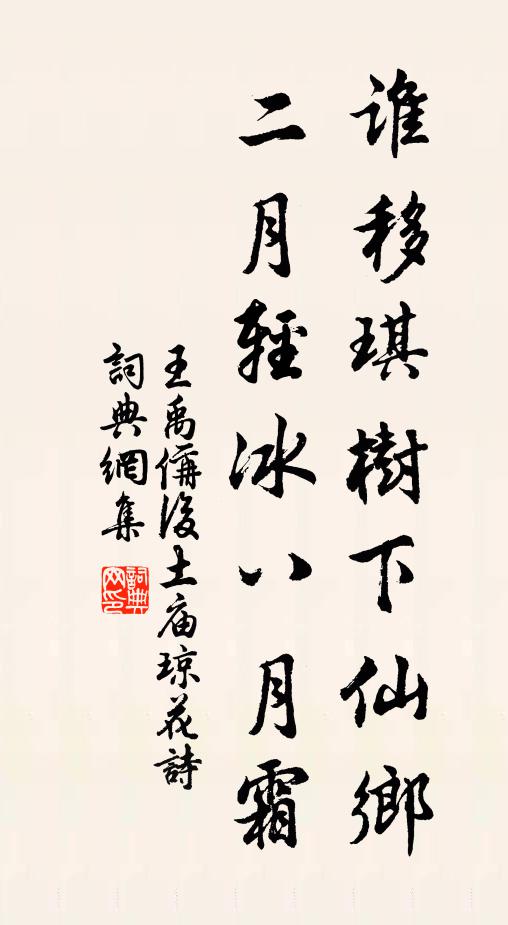 谁移琪樹下仙鄉
二月輕冰八月霜
王禹偁後土庙琼花詩
詞典網集
詞典网印